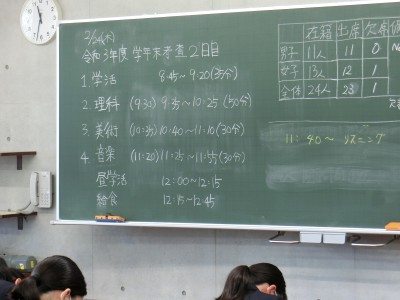 2/24(木)
令和3年度 学年末考査2日目
1. 学活 8:45~9:20(35分)
2. 理科 (9:30) 9:35~10:25 (50分)
3. 美術 (10:35) 10:40~11:10 (30分)
4. 音楽 (11:20) 11:25~11:55 (30分)
昼学活 12:00~12:15
給食 12:15~12:45
在籍 出席 欠席
男子 11人 11 0
女子 13人 12 1
全体 24人 23 1
11:40~ リスニング